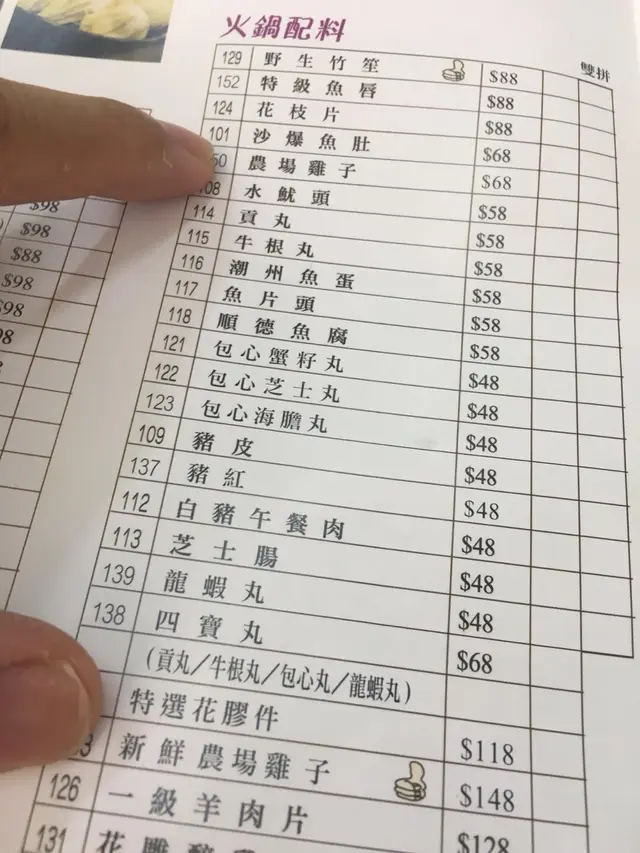 火鍋配料
雙拼
129 野生竹笙 $88
152 特級魚唇 $88
124 花枝片 $88
101 沙爆魚肚 $68
50 農場雞子 $68
08 水魷頭 $58
114 貢丸 $58
115 牛根丸 $58
116 潮州魚蛋 $58
117 魚片頭 $58
118 順德魚腐 $58
121 包心蟹籽丸 $48
122 包心芝士丸 $48
123 包心海膽丸 $48
109 豬皮 $48
137 豬紅 $48
112 白豬午餐肉 $48
113 芝士腸 $48
139 龍蝦丸 $48
138 四寶丸 $68
(貢丸/牛根丸/包心丸/龍蝦丸)
特選花膠件 $118
3 新鮮農場雞子 $148
126 一級羊肉片 $128
131 花雕醉
$98
$98
$88
$98
$98
98